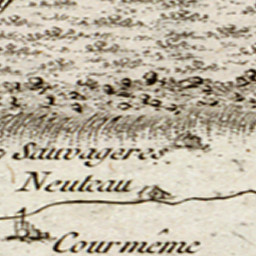 Sauvageres
Neuteau
Courmême